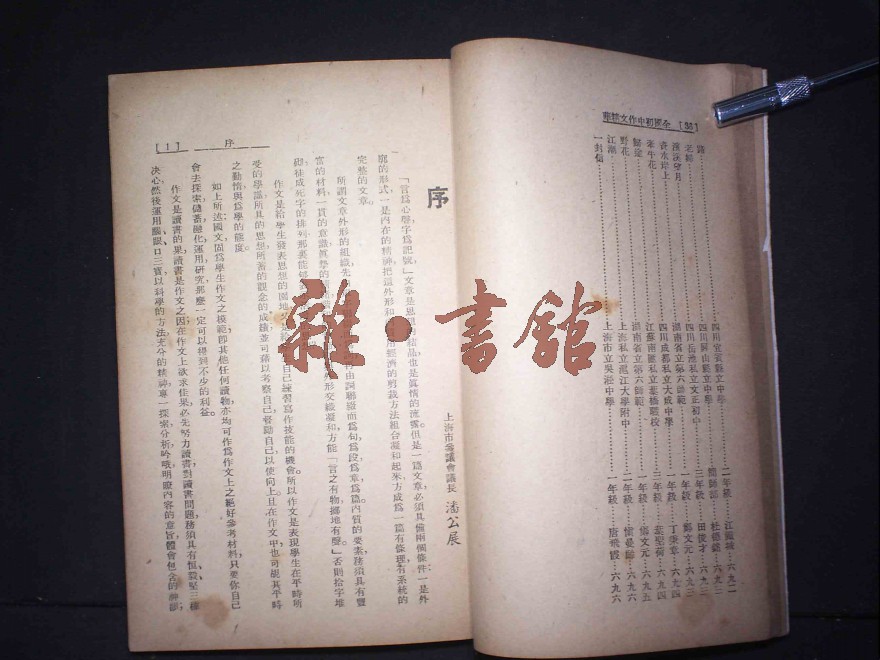 全國初中作文精華 [36]
路
老師
漢溪望月
青水岸上
牽牛花
歸途
野花
江潮
一封信
四川宜賓縣立中學
四川岳池私立文正初中
四川屏山縣立中學
湖南省立第六師範
四川成都私立大成中學
江蘇南匯私立葉榛職校
湖南省立第六師範
上海私立滬江大學附中
上海市立吳淞中學
二年級
簡師部
三年級
一年級
一年級
三年級
一年級
一年級
一年級
六九二
杜德銘 六九二
田俊才 六九三
鄭文元 六九三
丁秉章 六九四
葉聖荷 六九四
鄭文元 六九五
六九六
唐飛霞 六九六
序
上海市參議會議長 潘公展
「言爲心聲字爲記號」文章是思想的結晶也是眞情的流露但是一篇文章必須具備兩個條件：一是外
廓的形式一是內在的精神把這外形和 經濟的剪裁方法組合凝和起來方成爲一篇有條理有系統的
完整的文章。
所謂文章外形的組織先 由詞聯綴而爲句爲段爲章爲篇內質的要素務須具有豐
富的材料一貫的意識眞摯的 形交織凝和方能「言之有物擲地有聲」否則拾字堆
砌徒成死字的排列那裏能夠
作文是給學生發表思想的園地 自己練習寫作技能的機會所以作文是表現學生在平時所
受的學識所具的思想所蓄的觀念的成績並可藉以考察自己督勖自己以使向上且在作文中也可覘其平時
之勤惰與爲學的態度。
如上所述國文固爲學生作文之模範即其他任何讀物亦均可作爲作文上之絕好參考材料只要你自己
會去探索儲蓄融化運用研究那麼一定可以得到不少的利益。
作文是讀書的果讀書是作文之因在作文上欲求佳果必先努力讀書對讀書問題務須具有恆毅堅三種
決心然後運用腦眼口三寶以科學的方法充分的精神專一探索分析吟哦明瞭內容的意旨體會包含的神韻；
序 [1]
雜·書館